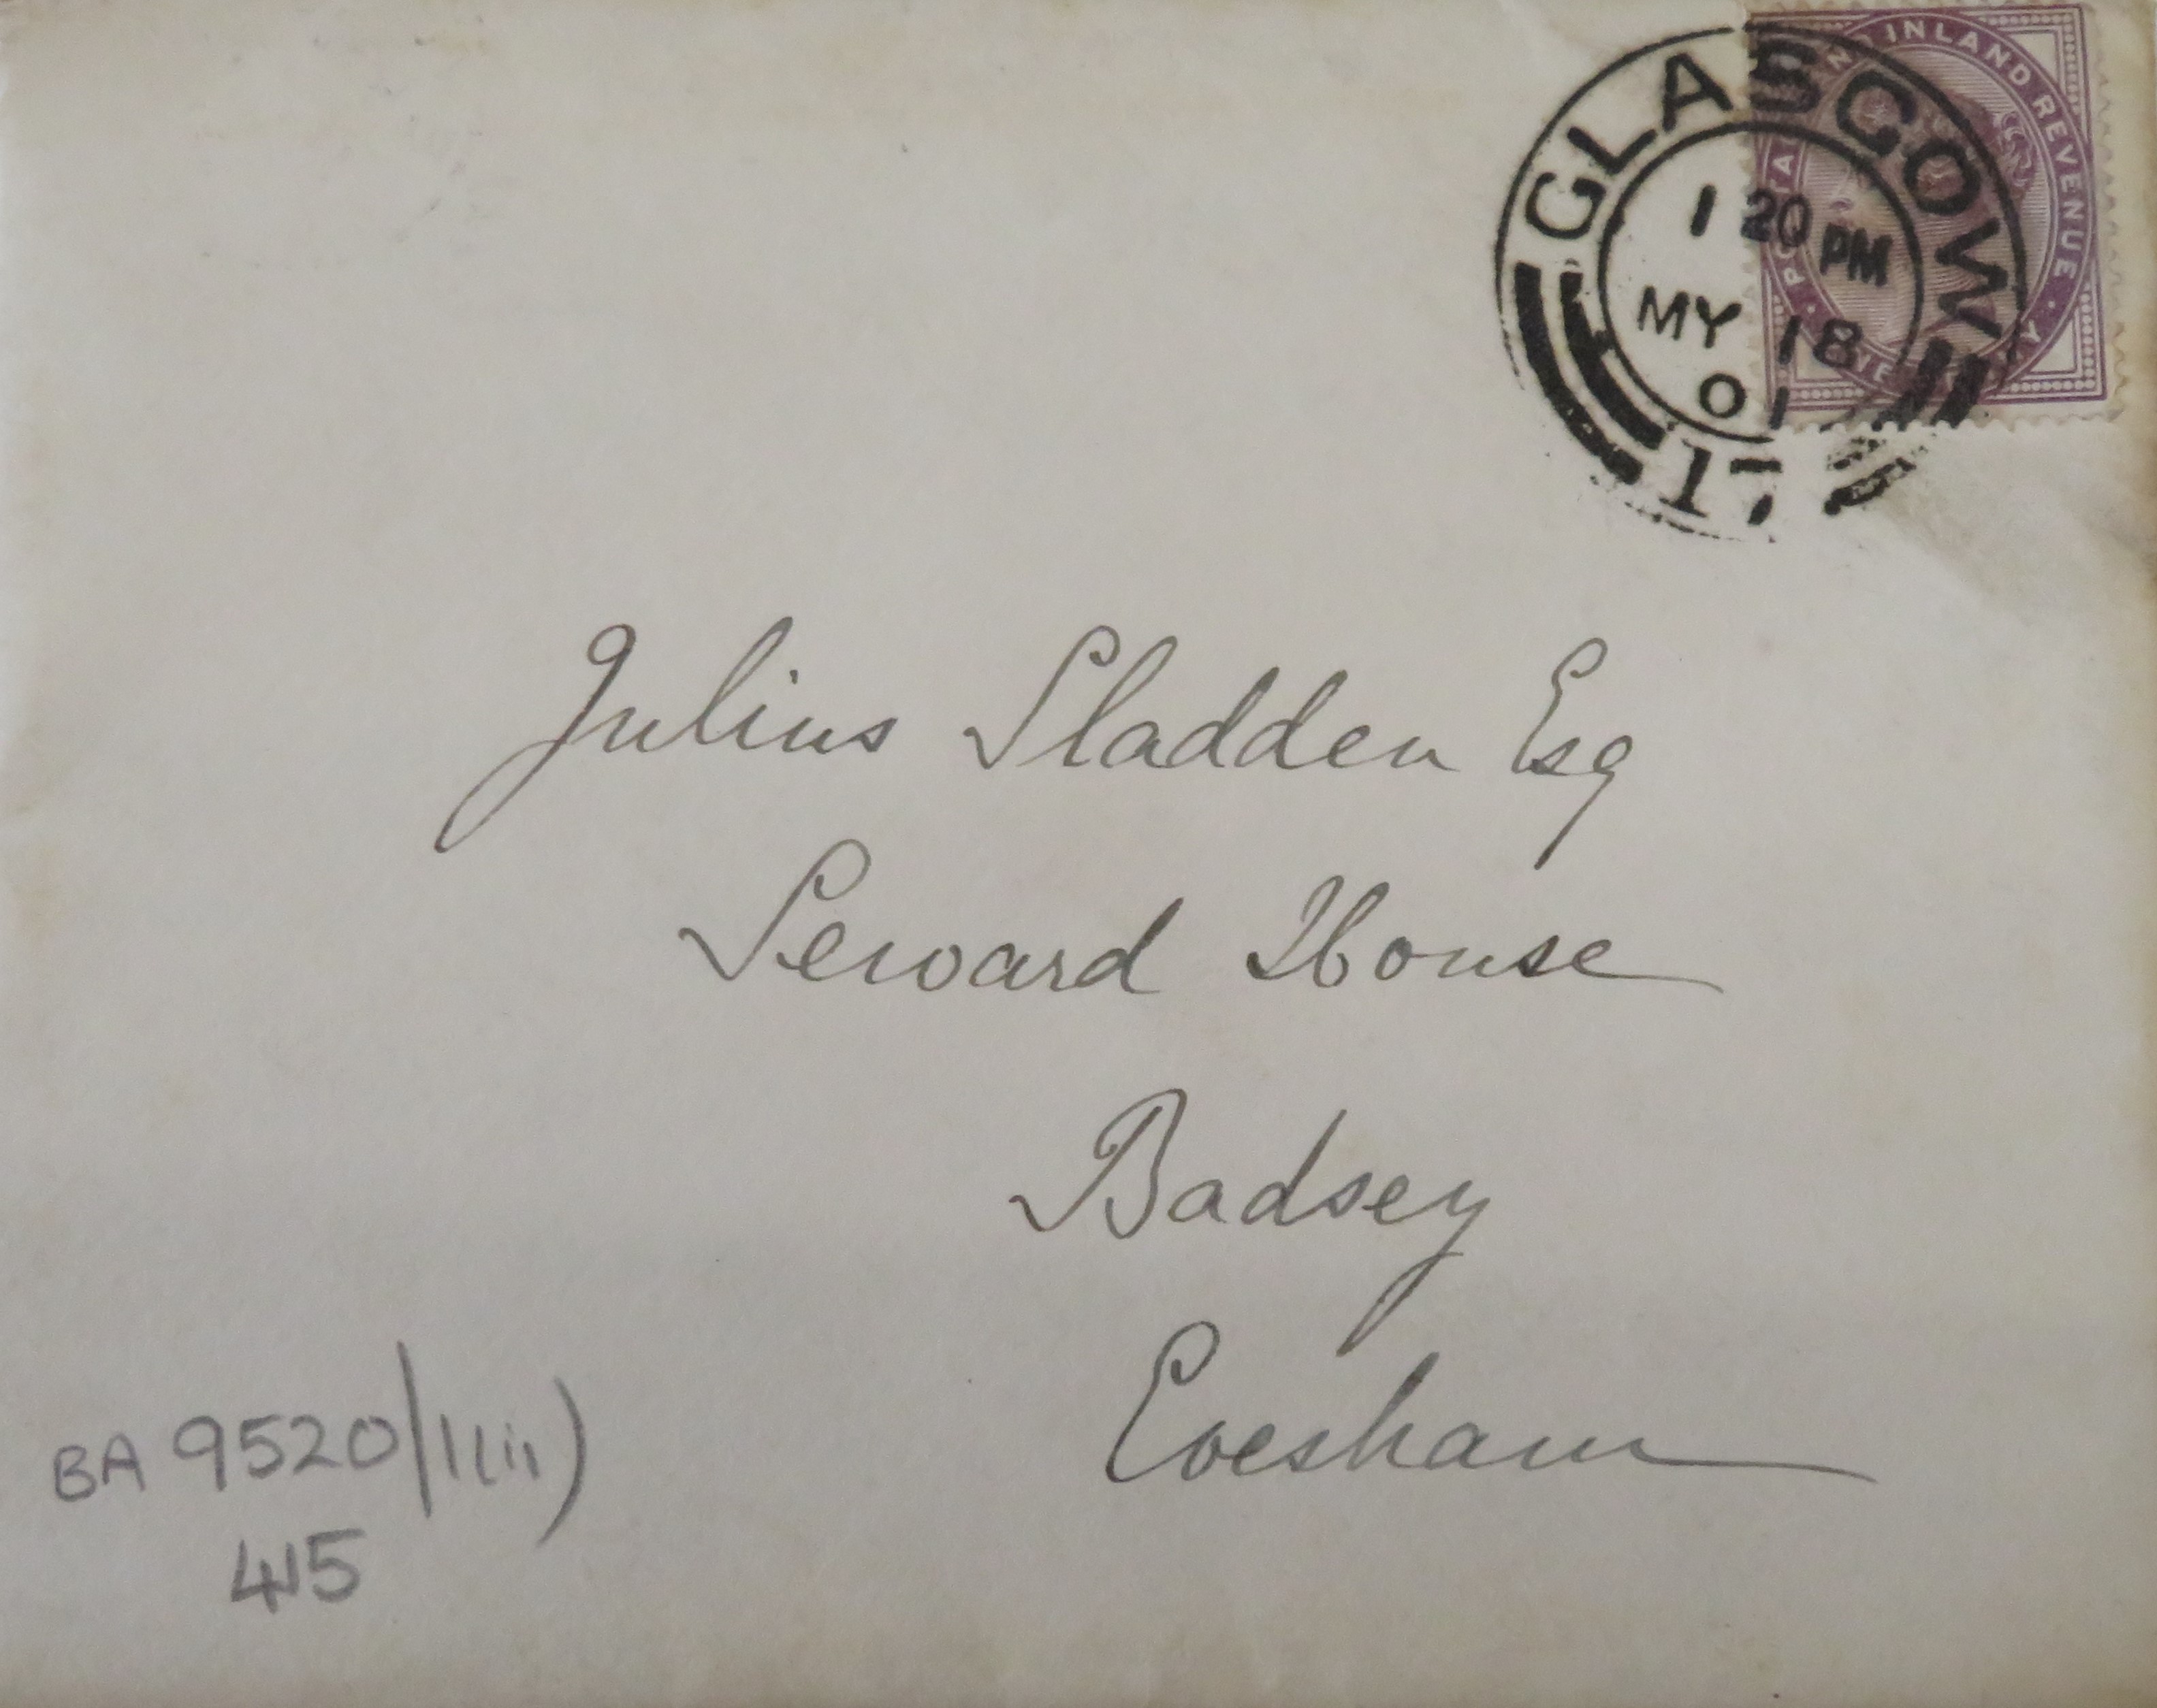 GLASGOW
1 20 PM
MY 18
01
17
POSTAGE AND INLAND REVENUE
ONE PENNY
Julius Sladden Esq
Seward House
Badsey
Evesham
BA 9520/1(iii)
415